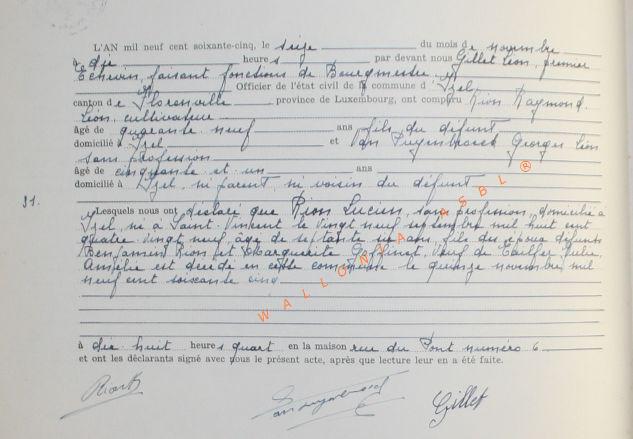 L'AN mil neuf cent soixante-cinq, le seize du mois de novembre
à dix heures par devant nous Gillet Léon, premier
Echevin, faisant fonctions de Bourgmestre
Officier de l'état civil de la commune d'Izel,
canton de Florenville province de Luxembourg, ont comparu Rion Raymond
Léon, cultivateur
âgé de quarante neuf ans fils du défunt
domicilié à Izel et Van Puymbroeck Georges Léon
sans profession
âgé de cinquante et un ans
domicilié à Izel, ni parent, ni voisin du défunt
31.
Lesquels nous ont déclaré que Rion Lucien, sans profession, domicilié à
Izel, né à Saint-Vincent le vingt neuf septembre mil huit cent
quatre vingt neuf, âgé de septante six ans, fils des époux défunts
Benjamin Rion et Marguerite veuf de Julie
Amélie est décédé en cette commune le quinze novembre mil
neuf cent soixante cinq
à dix huit heures quart en la maison rue du Pont numéro 6
et ont les déclarants signé avec nous le présent acte, après que lecture leur en a été faite.
Gillet
WALLONIA ASBL ®